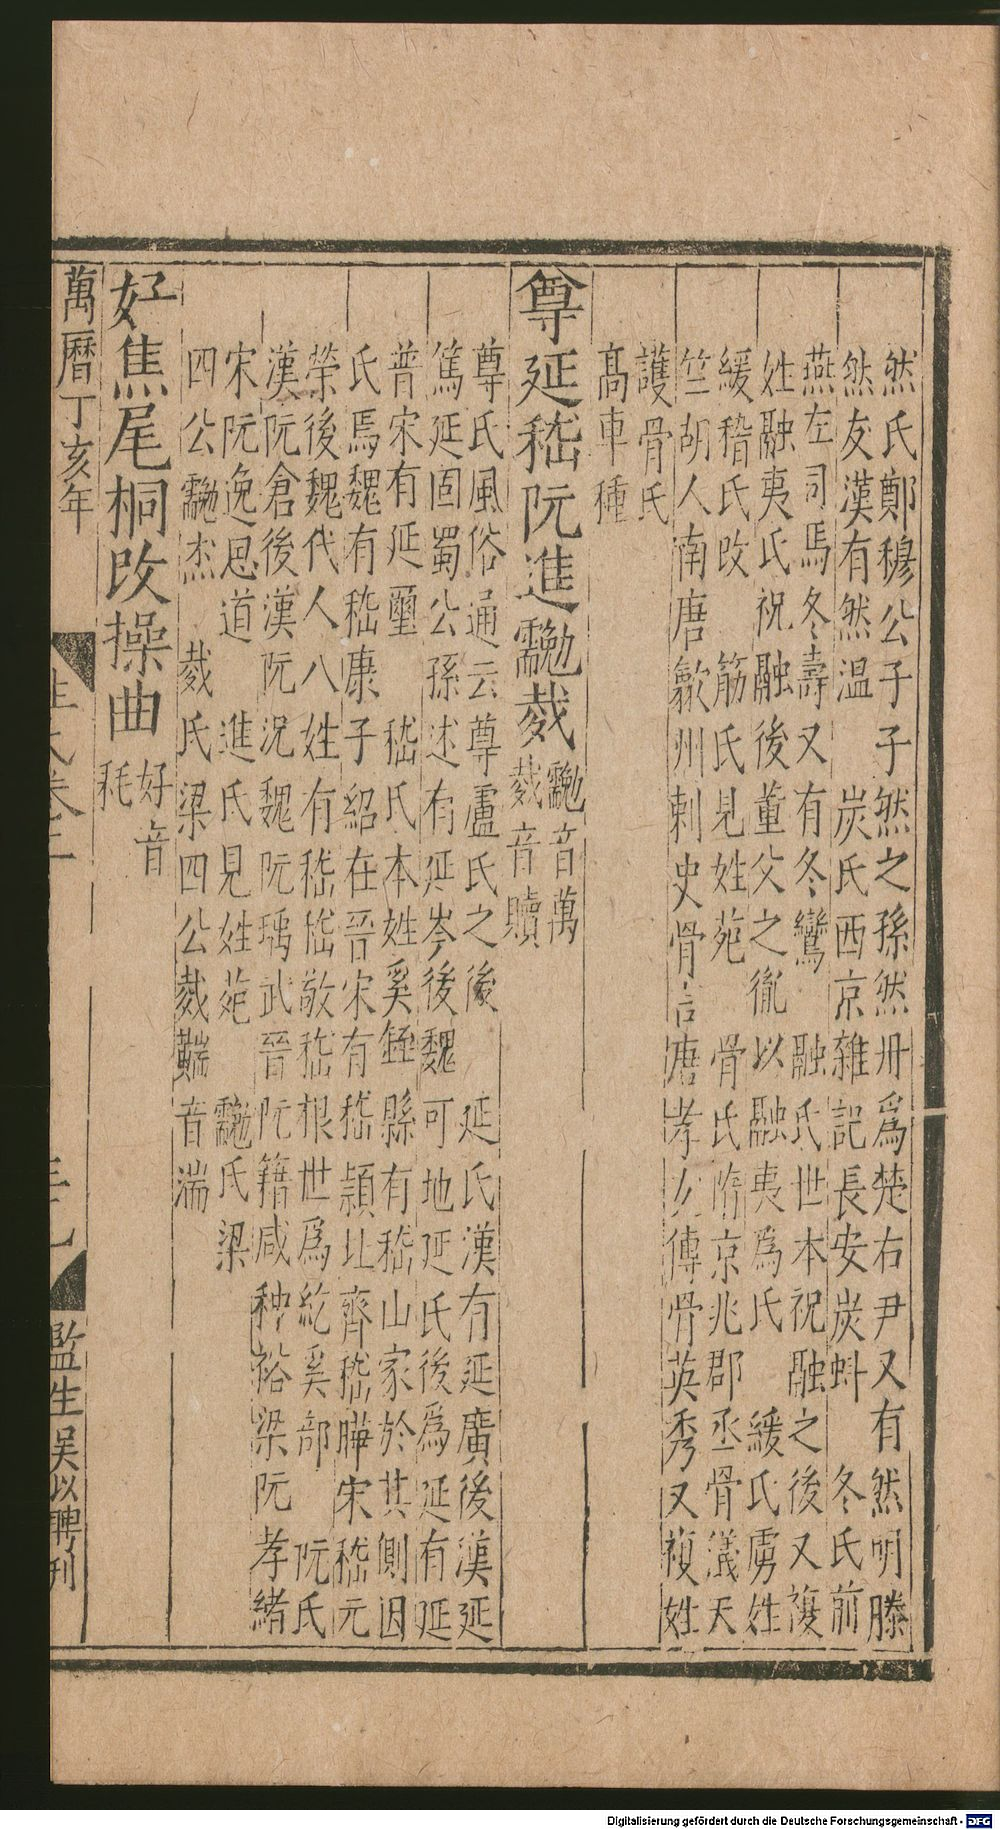 然氏鄭穆公子子然之孫然丹爲楚右尹又有然明滕
然友漢有然溫　炭氏西京雜記長安炭蚪　冬氏前
燕左司馬冬壽又有冬鸞　融氏世本祝融之後又複
姓融夷氏祝融後董父之胤以融夷爲氏　緩氏虜姓
緩稽氏改　筋氏見姓苑　骨氏隋京兆郡丞骨儀天
竺胡人南唐歙州刺史骨言唐孝女傳骨英秀又複姓
護骨氏
高車種
尊延嵇阮進䨲㦸
䨲音萬
㦸音贖
尊氏風俗通云尊盧氏之後　延氏漢有延廣後漢延
篤延固蜀公孫述有延岑後魏可地延氏後爲延有延
普宋有延壐　嵇氏本姓奚銍縣有嵇山家於其側因
氏焉魏有嵇康子紹在晉宋有嵇頴北齊嵇曄宋嵇元
榮後魏代人八姓有嵇嵇敬嵇根世爲紇奚部　阮氏
漢阮倉後漢阮況魏阮瑀武晉阮籍咸种裕梁阮孝緒
宋阮逸思道　進氏見姓苑　䨲氏梁
四公䨲杰　㦸氏梁四公㦸䵎音湍
好焦尾桐改操曲
好音
耗
萬曆丁亥年
監生吴以聘刊
Digitalisierung gefördert durch die Deutsche Forschungsgemeinschaft - DFG